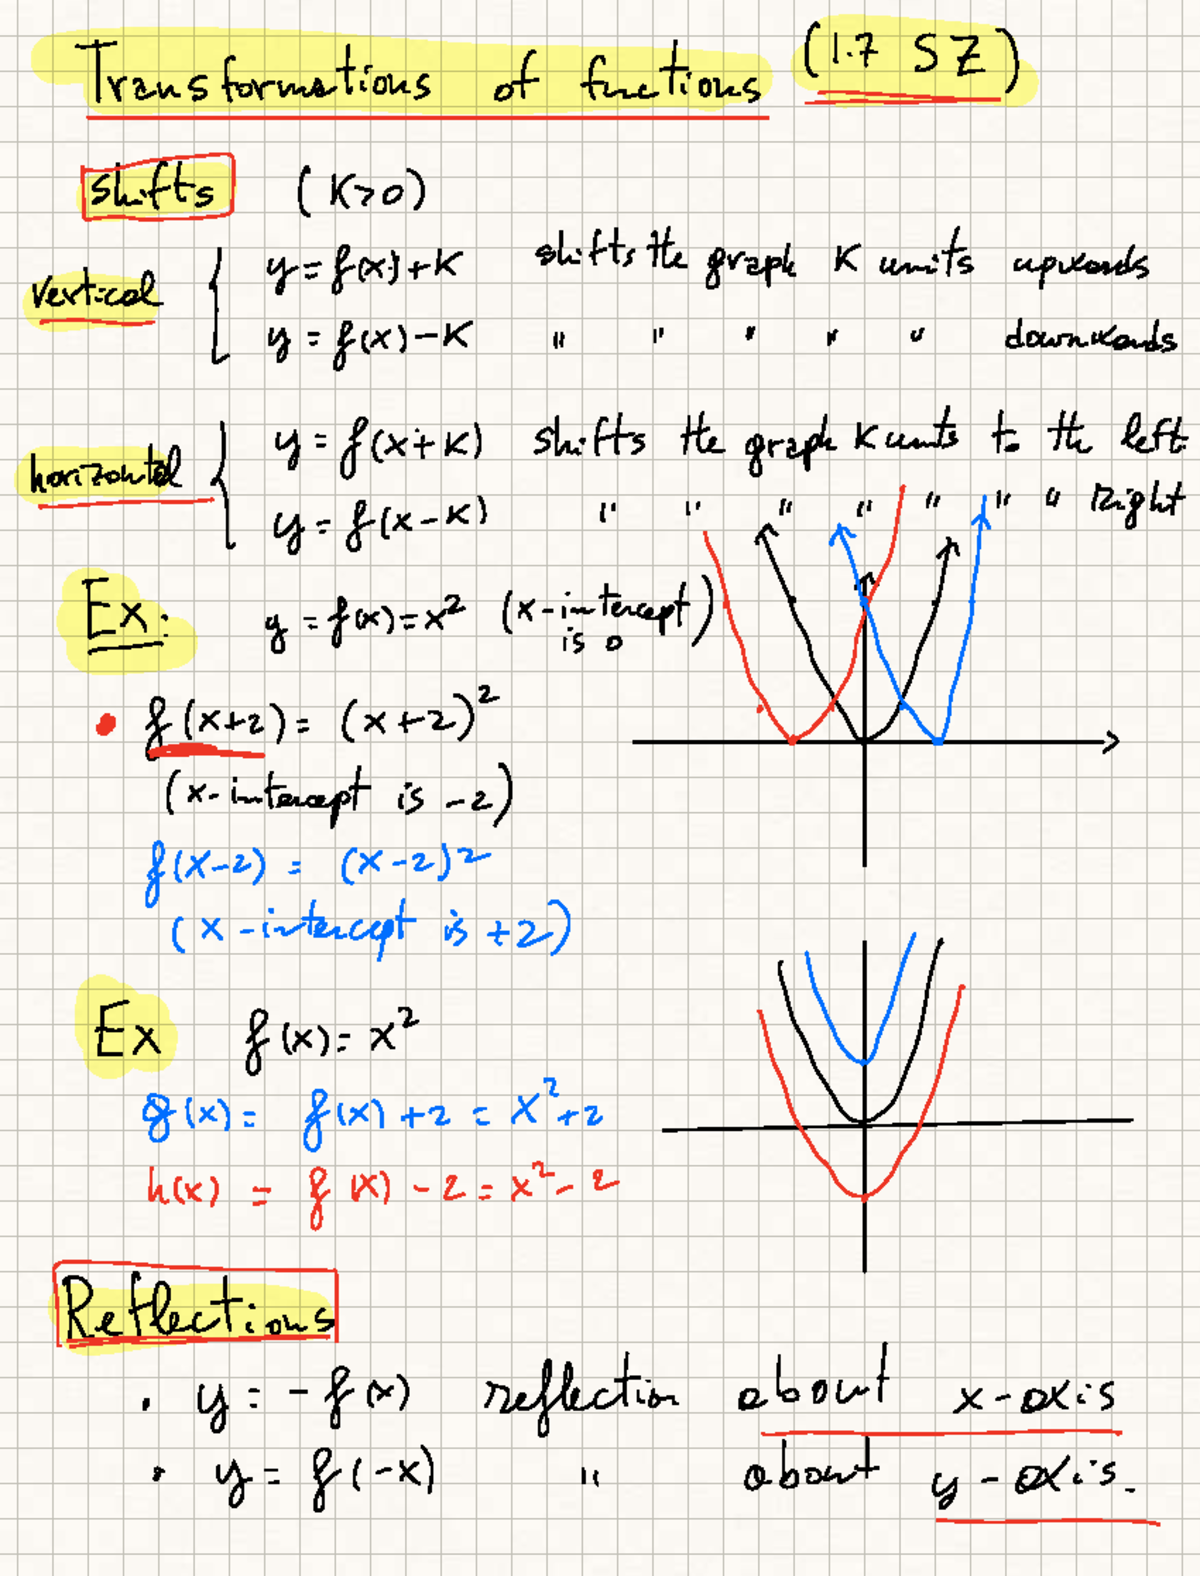 Transformations of fuctions (1.7 SZ)
shifts (K>0)
vertical { y = f(x)+K shifts the graph K units upwards
y = f(x)-K " " " " " downwards
horizontal { y = f(x+K) shifts the graph K units to the left
y = f(x-K) " " " " " " " Right
Ex: y = f(x) = x² (x-intercept is 0)
• f(x+2) = (x+2)²
(x-intercept is -2)
f(x-2) = (x-2)²
(x-intercept is +2)
Ex f(x) = x²
g(x) = f(x)+2 = x²+2
h(x) = f(x)-2 = x²-2
Reflections
• y = -f(x) reflection about x-axis
• y = f(-x) " about y-axis.